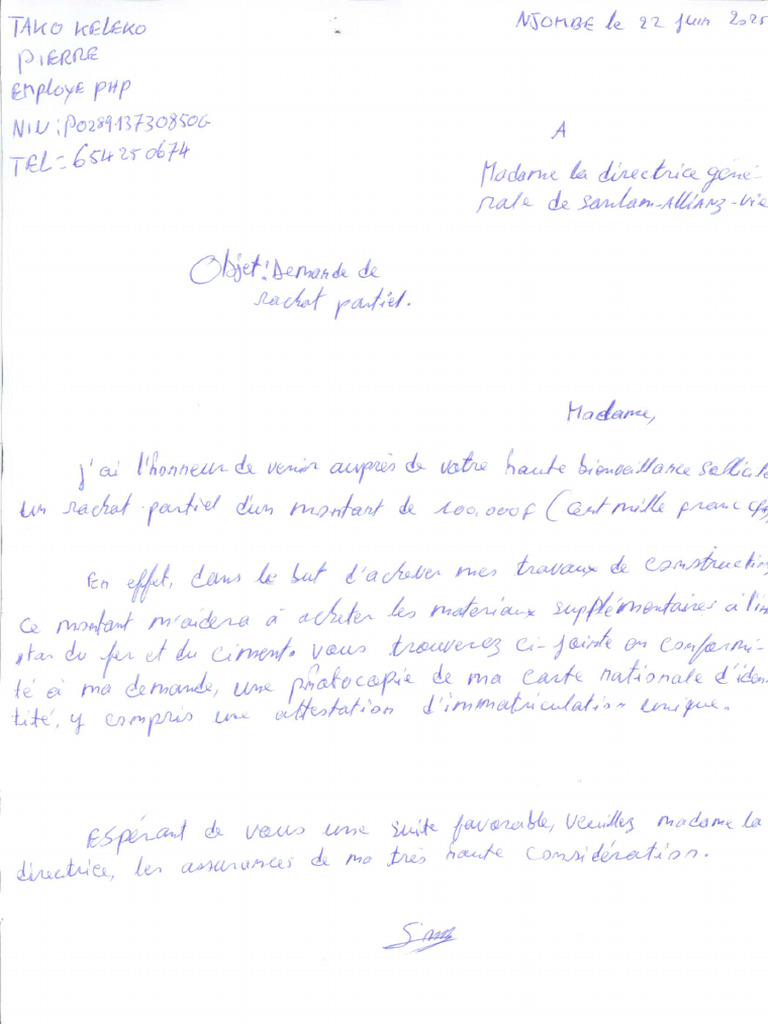 TAKO KELEKO
NJOMBE le 22 juin 2025
PIERRE
Employe PHP
NIU : P028913730850G
TEL = 654250674
A
Madame la directrice géné-
rale de sanlam-ALLiANZ-Vie
Objet: Demande de
rachat partiel.
Madame,
j'ai l'honneur de venir auprès de votre haute bienveillance sollicite
un rachat partiel d'un montant de 100.000f (Cent mille franc cfa)
En effet, dans le but d'achever mes travaux de construction
ce montant m'aidera à acheter les materiaux supplémentaires à l'in
star du fer et du ciment. vous trouverez ci-jointe en conformi-
té à ma demande, une photocopie de ma carte nationale d'iden
tité, y compris une attestation d'immatriculation unique.
ESpérant de vous une suite favorable, Veuillez madame la
directrice, les assurances de ma très haute considération.